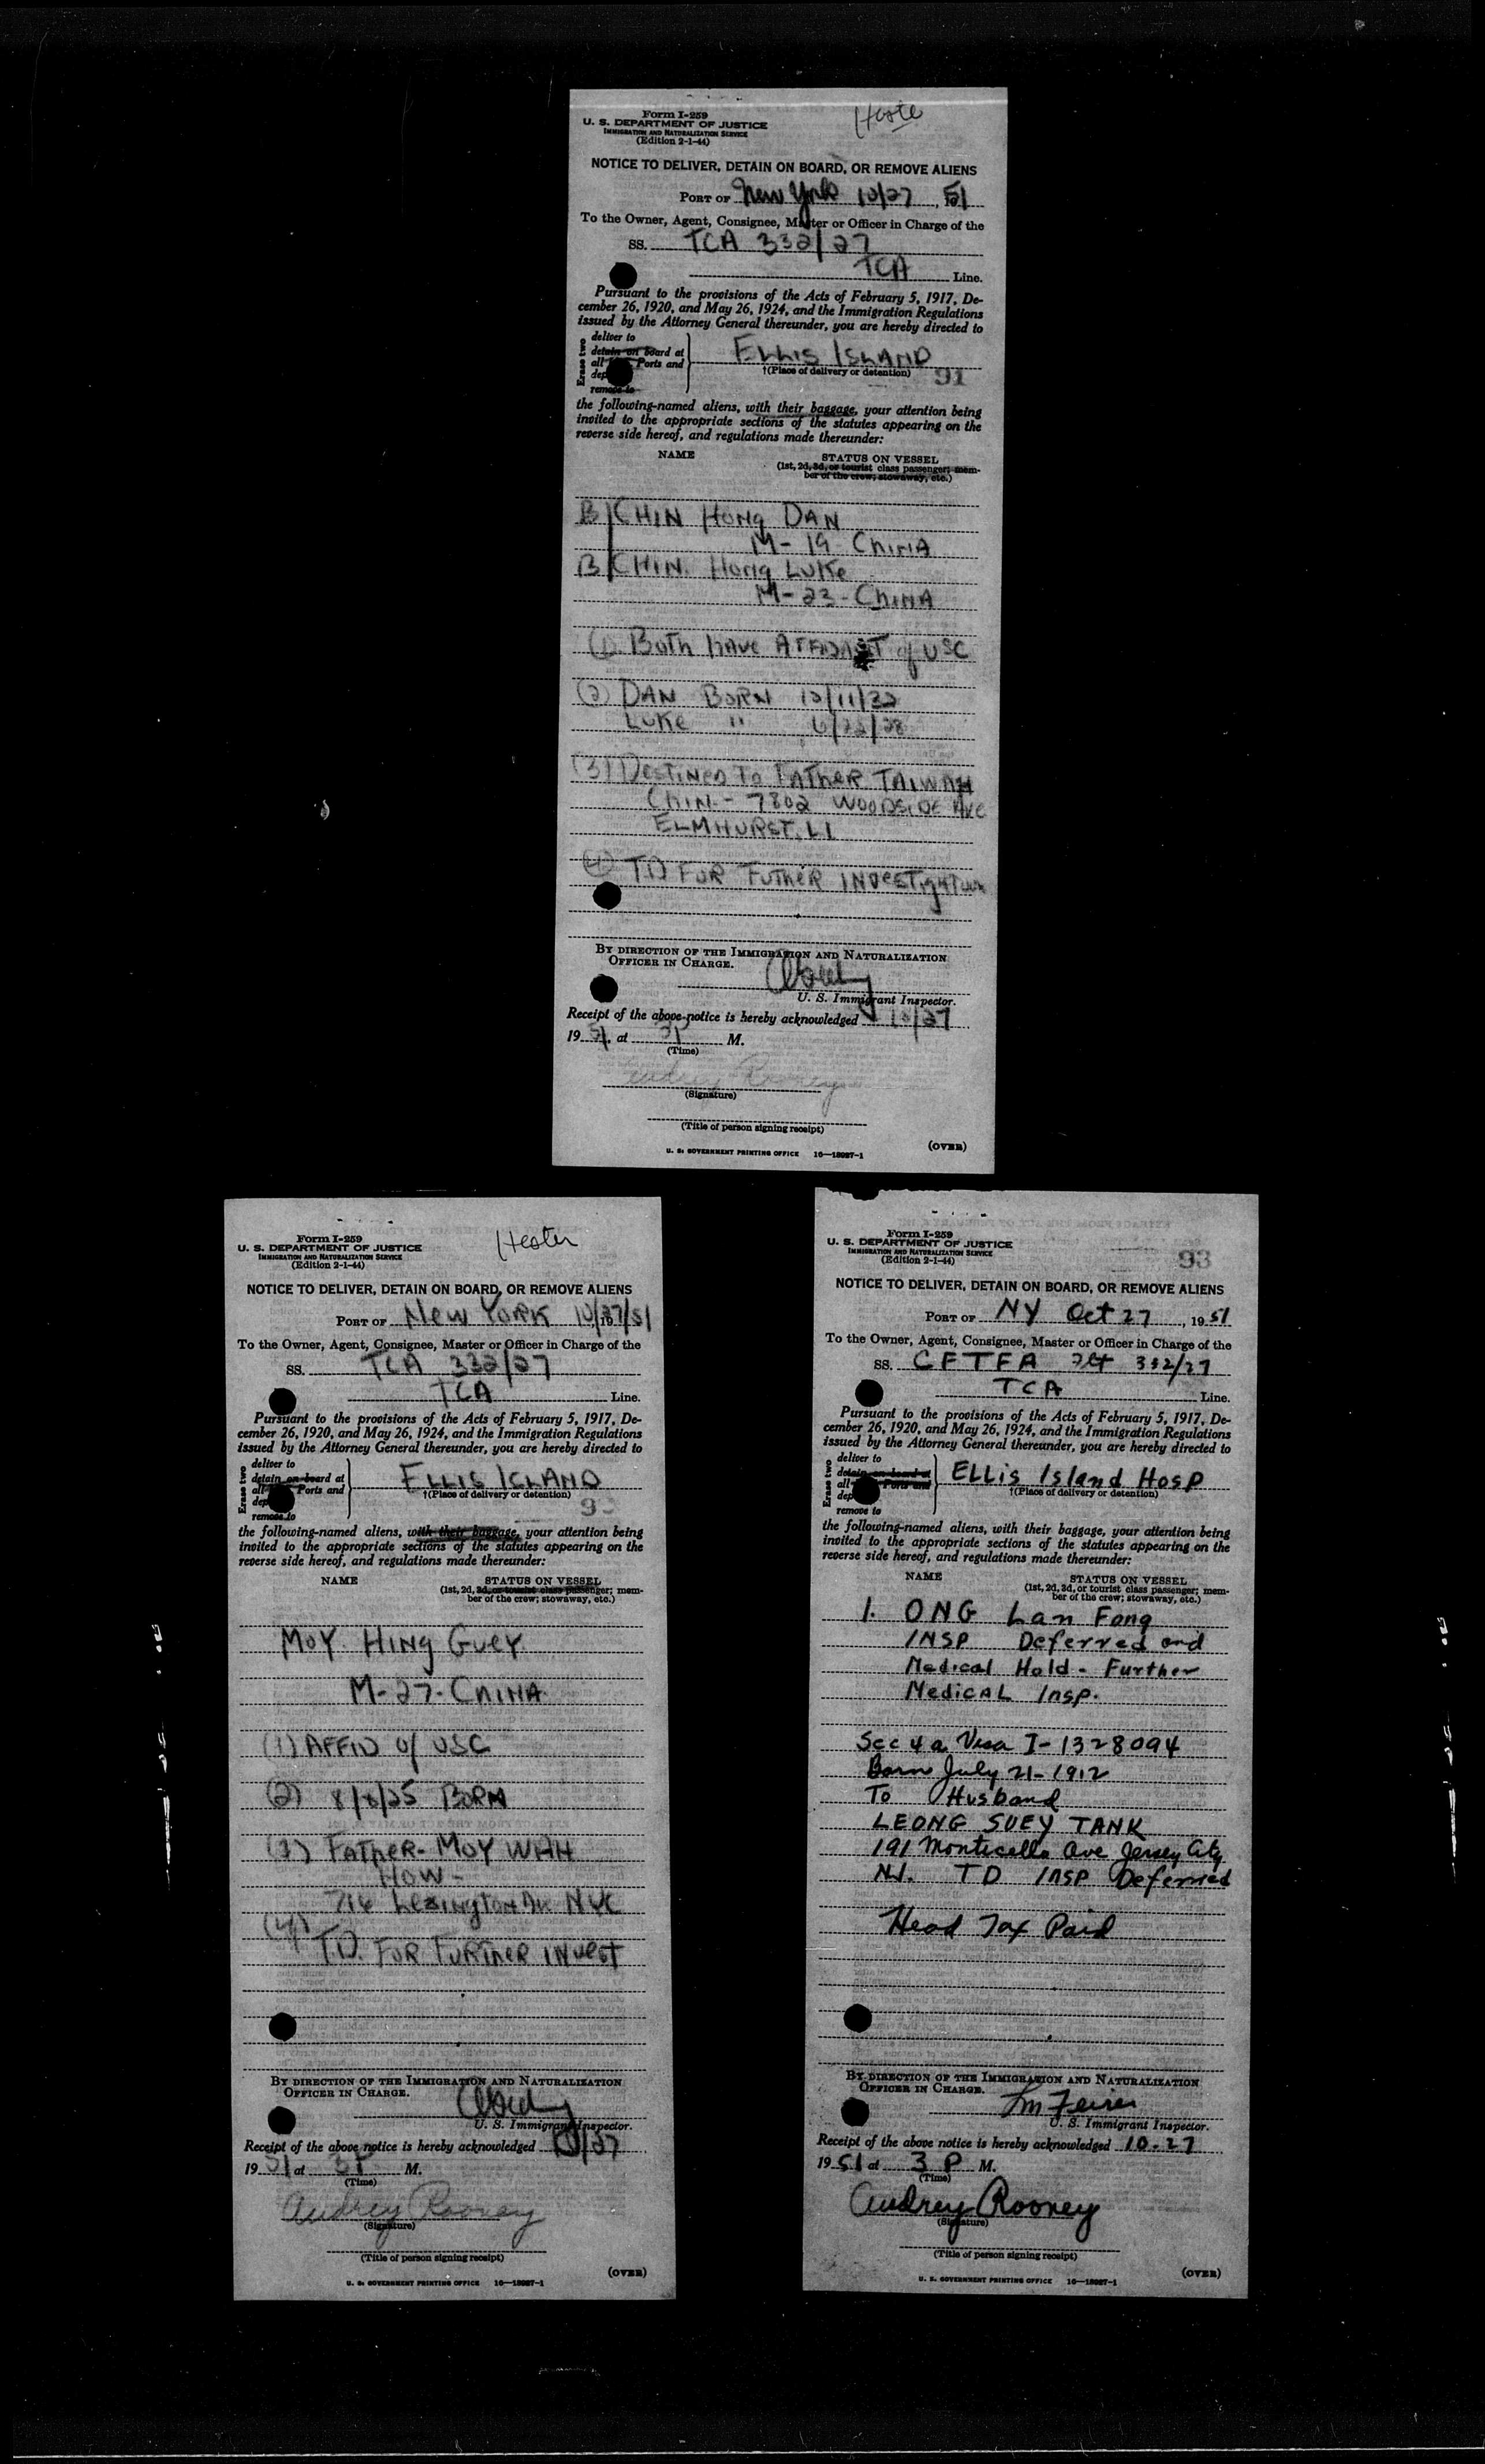 Form I-259
U. S. DEPARTMENT OF JUSTICE
IMMIGRATION AND NATURALIZATION SERVICE
(Edition 2-1-44)
NOTICE TO DELIVER, DETAIN ON BOARD, OR REMOVE ALIENS
PORT OF New York 10/27, 51
To the Owner, Agent, Consignee, Master or Officer in Charge of the
SS. TCA 332/27
TCA Line.
Pursuant to the provisions of the Acts of February 5, 1917, De-
cember 26, 1920, and May 26, 1924, and the Immigration Regulations
issued by the Attorney General thereunder, you are hereby directed to
Erase two
deliver to
detain on board at
all Ports and
dep
remove to
ELLIS ISLAND
†(Place of delivery or detention) 91
the following-named aliens, with their baggage, your attention being
invited to the appropriate sections of the statutes appearing on the
reverse side hereof, and regulations made thereunder:
NAME STATUS ON VESSEL
(1st, 2d, 3d, or tourist class passenger; mem-
ber of the crew; stowaway, etc.)
B CHIN Hong DAN
M-19-CHINA
B CHIN Hong LUKe
M-23-CHINA
(1) Both have of USC
(2) DAN BORN 12/11/32
LUKe " /28
(3) DESTINED TO FATHER TAIWAH
CHIN - 7802 WOODSIDE AVE
ELMHURST, LI
(4) TD FOR FUTHER INVESTIGATION
BY DIRECTION OF THE IMMIGRATION AND NATURALIZATION
OFFICER IN CHARGE.
U. S. Immigrant Inspector.
Receipt of the above notice is hereby acknowledged 10/27
1951, at 3P M.
(Time)
Audrey Rooney
(Signature)
(Title of person signing receipt)
(OVER)
U. S. GOVERNMENT PRINTING OFFICE 16—18927-1
Form I-259
U. S. DEPARTMENT OF JUSTICE
IMMIGRATION AND NATURALIZATION SERVICE
(Edition 2-1-44)
Hester
NOTICE TO DELIVER, DETAIN ON BOARD, OR REMOVE ALIENS
PORT OF New YORK 10/27/51
To the Owner, Agent, Consignee, Master or Officer in Charge of the
SS. TCA 332/27
TCA Line.
Pursuant to the provisions of the Acts of February 5, 1917, De-
cember 26, 1920, and May 26, 1924, and the Immigration Regulations
issued by the Attorney General thereunder, you are hereby directed to
Erase two
deliver to
detain on board at
all Ports and
dep
remove to
ELLIS ISLAND
†(Place of delivery or detention)
the following-named aliens, with their baggage, your attention being
invited to the appropriate sections of the statutes appearing on the
reverse side hereof, and regulations made thereunder:
NAME STATUS ON VESSEL
(1st, 2d, 3d, or tourist class passenger; mem-
ber of the crew; stowaway, etc.)
MOY HING GUEY
M-27-CHINA
(1) AFFID of USC
(2) 8/8/25 BORN
(3) FATHER-MOY WAH
HOW-
716 Lexington Av NYC
(4)
TD. FOR FURTHER INVEST
BY DIRECTION OF THE IMMIGRATION AND NATURALIZATION
OFFICER IN CHARGE.
U. S. Immigrant Inspector.
Receipt of the above notice is hereby acknowledged 10/27
1951 at 3P M.
(Time)
Audrey Rooney
(Signature)
(Title of person signing receipt)
(OVER)
U. S. GOVERNMENT PRINTING OFFICE 16—18927-1
Form I-259
U. S. DEPARTMENT OF JUSTICE
IMMIGRATION AND NATURALIZATION SERVICE
(Edition 2-1-44)
93
NOTICE TO DELIVER, DETAIN ON BOARD, OR REMOVE ALIENS
PORT OF NY Oct 27, 1951
To the Owner, Agent, Consignee, Master or Officer in Charge of the
SS. CFTFA 332/27
TCA Line.
Pursuant to the provisions of the Acts of February 5, 1917, De-
cember 26, 1920, and May 26, 1924, and the Immigration Regulations
issued by the Attorney General thereunder, you are hereby directed to
Erase two
deliver to
detain on board at
all Ports and
dep
remove to
ELLis Island Hosp
†(Place of delivery or detention)
the following-named aliens, with their baggage, your attention being
invited to the appropriate sections of the statutes appearing on the
reverse side hereof, and regulations made thereunder:
NAME STATUS ON VESSEL
(1st, 2d, 3d, or tourist class passenger; mem-
ber of the crew; stowaway, etc.)
1. ONG Lan Fong
INSP Deferred and
Medical Hold - Further
MedicAL Insp.
Sec 4 a Visa I-1328094
Born July 21-1912
To Husband
LEONG SUEY TANK
191 Monticello Ave Jersey City
NJ. TD INSP Deferred
Head Tax Paid
BY DIRECTION OF THE IMMIGRATION AND NATURALIZATION
OFFICER IN CHARGE.
U. S. Immigrant Inspector.
Receipt of the above notice is hereby acknowledged 10-27
1951 at 3 P M.
(Time)
Audrey Rooney
(Signature)
(Title of person signing receipt)
(OVER)
U. S. GOVERNMENT PRINTING OFFICE 16—18927-1